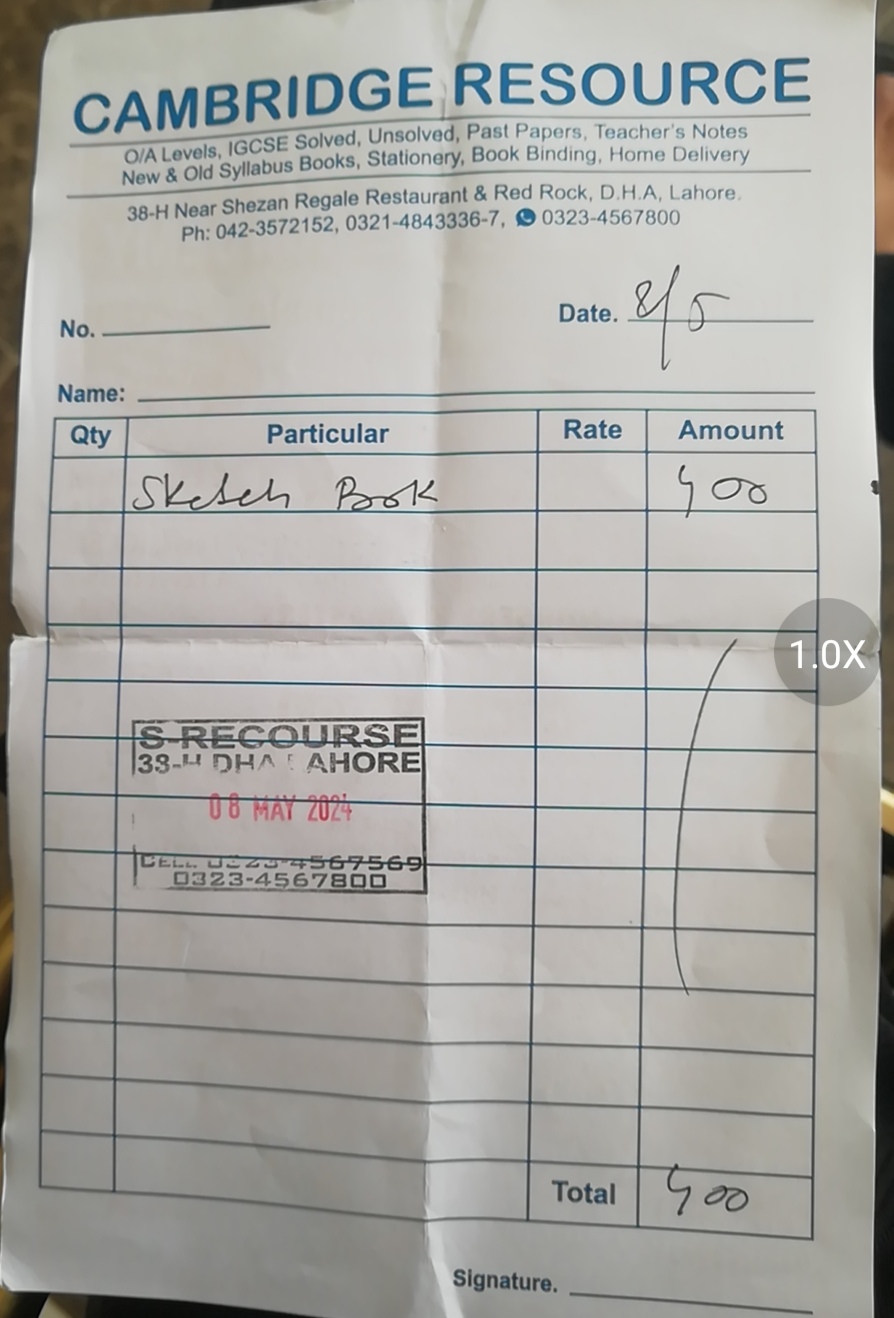 CAMBRIDGE RESOURCE
O/A Levels, IGCSE Solved, Unsolved, Past Papers, Teacher's Notes
New & Old Syllabus Books, Stationery, Book Binding, Home Delivery
38-H Near Shezan Regale Restaurant & Red Rock, D.H.A, Lahore.
Ph: 042-3572152, 0321-4843336-7, 0323-4567800
No.
Date. 8/5
Name:
Qty Particular Rate Amount
Sketch Book 400
1.0X
S-RECOURSE
38-H DHA LAHORE
08 MAY 2024
CELL 0323-4567569
0323-4567800
Total 400
Signature.